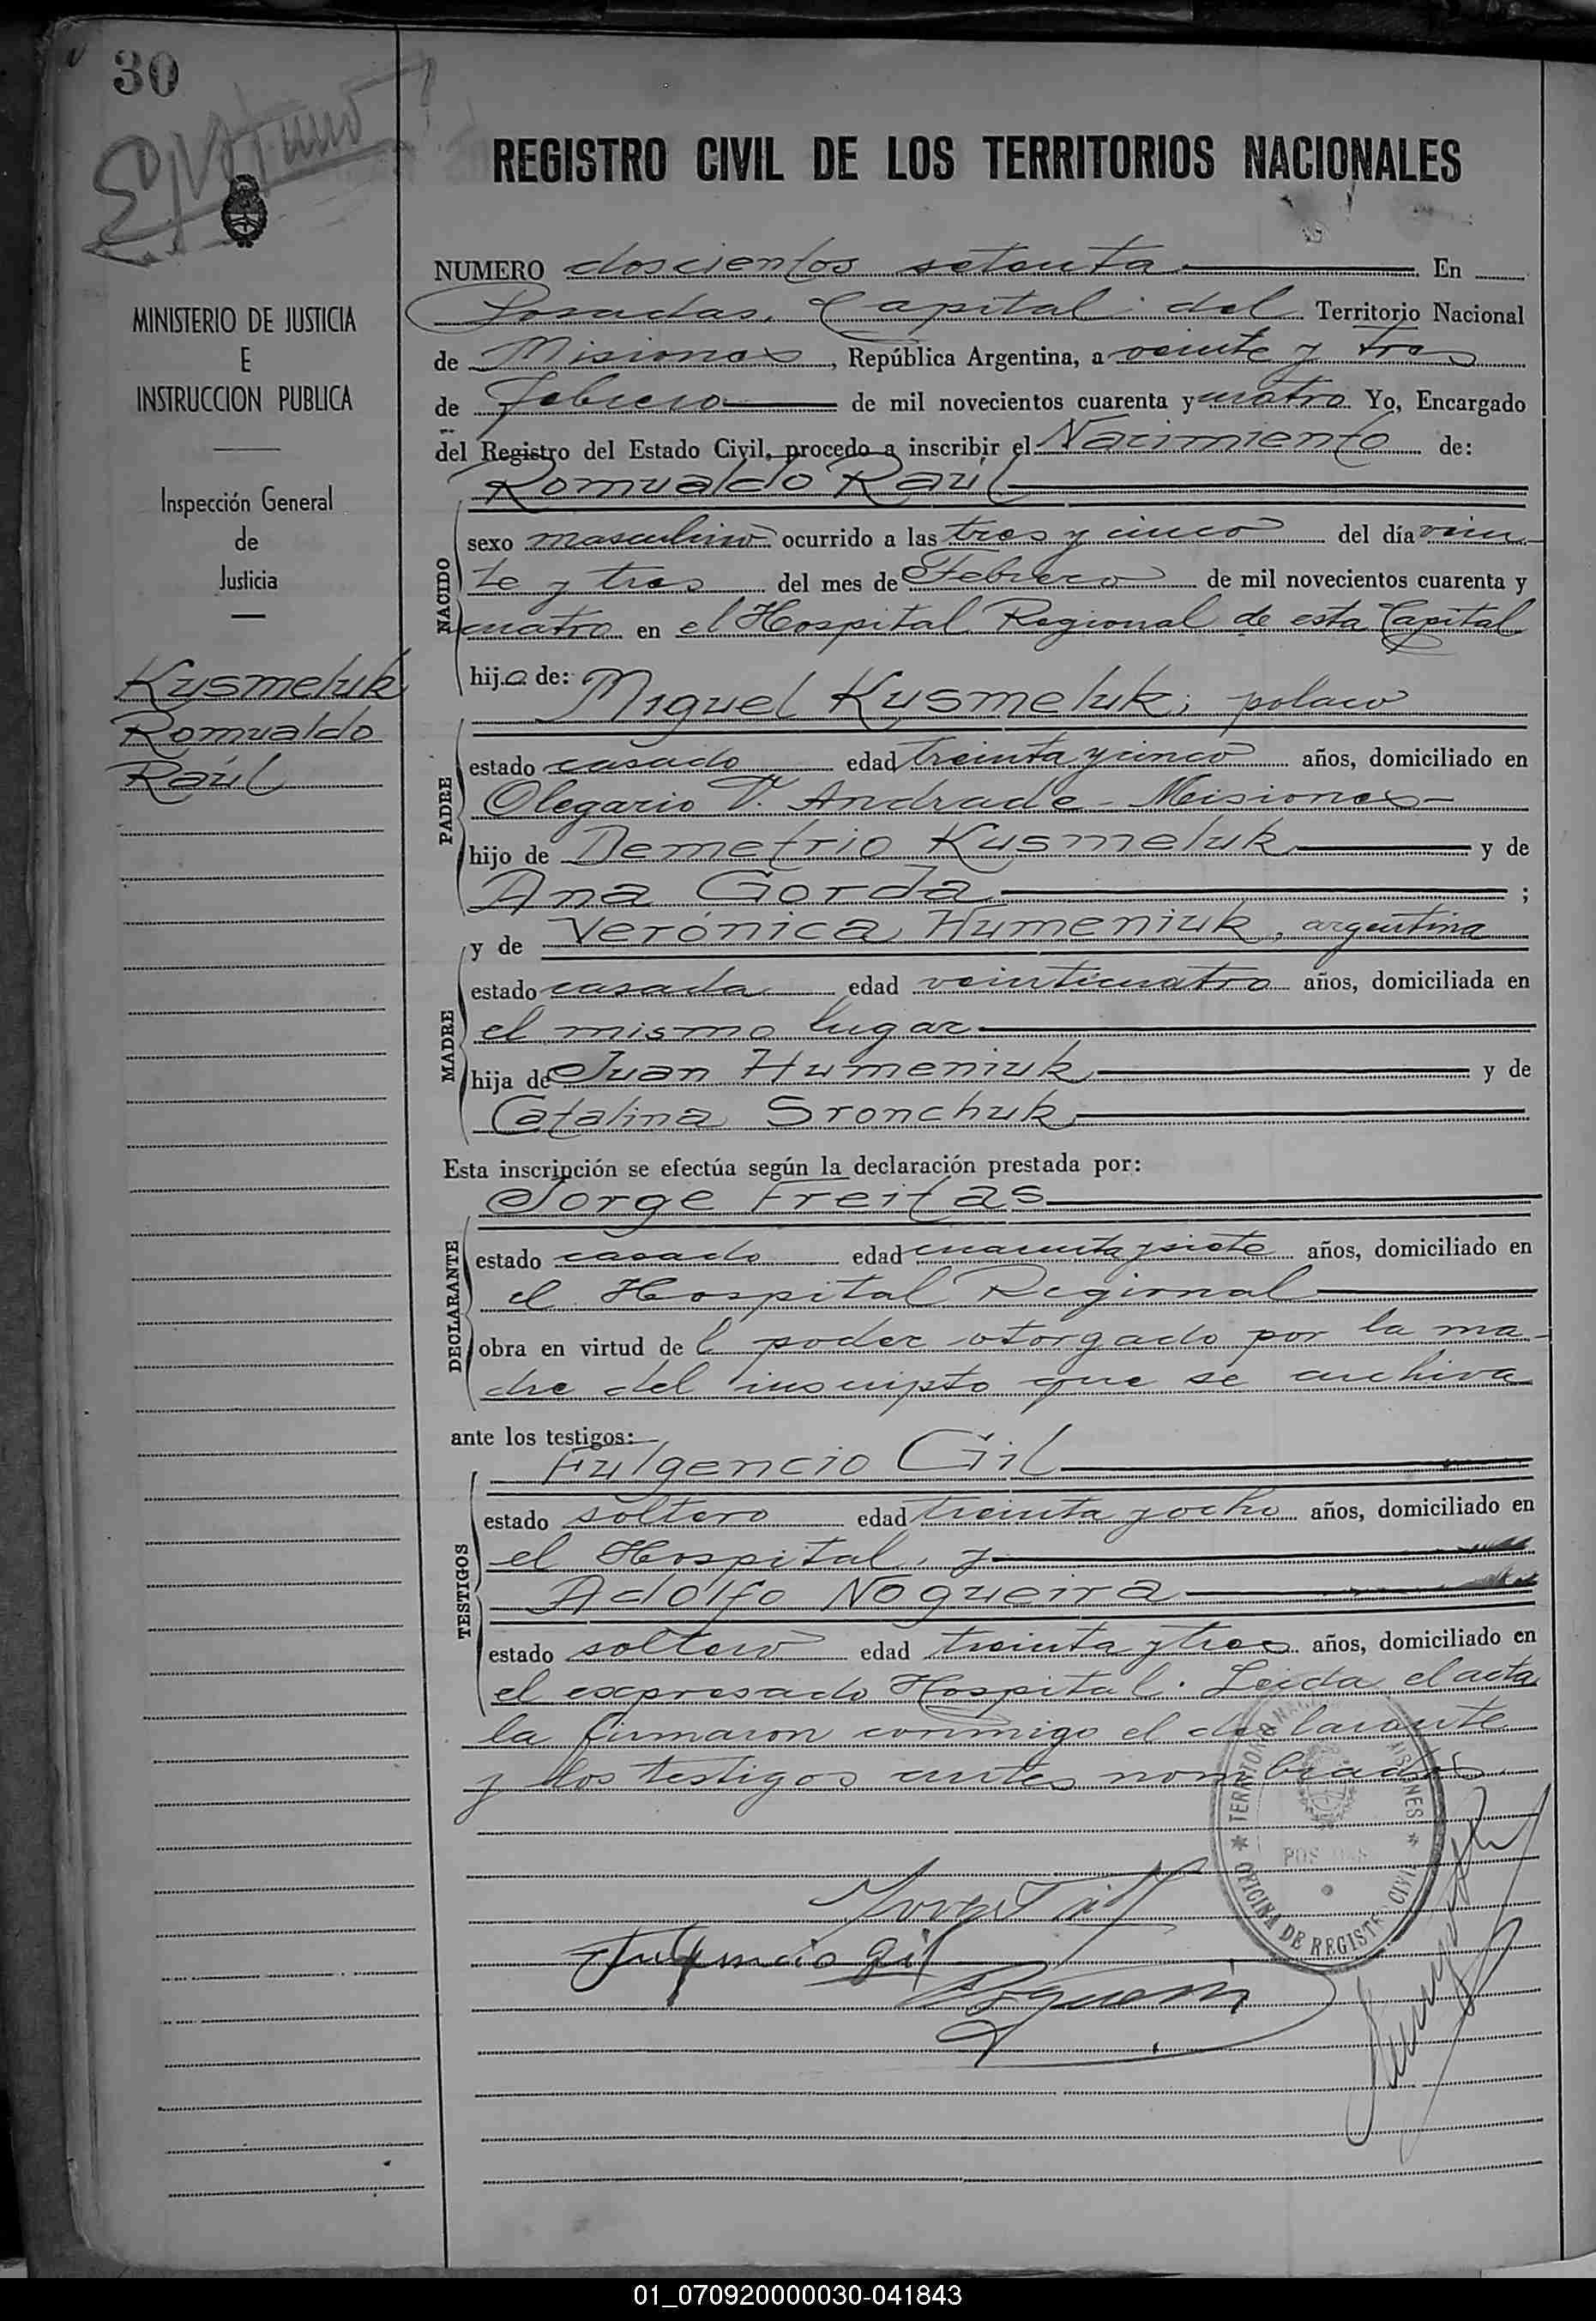 30
REGISTRO CIVIL DE LOS TERRITORIOS NACIONALES
MINISTERIO DE JUSTICIA
E
INSTRUCCION PUBLICA
Inspección General
de
Justicia
Kusmeluk
Romualdo
Raúl
NUMERO doscientos setenta En
Posadas, Capital del Territorio Nacional
de Misiones, República Argentina, a veinte y tres
de febrero de mil novecientos cuarenta y cuatro Yo, Encargado
del Registro del Estado Civil, procedo a inscribir el Nacimiento de:
Romualdo Raúl
NACIDO
sexo masculino ocurrido a las tres y cinco del día vein
te y tres del mes de Febrero de mil novecientos cuarenta y
cuatro en el Hospital Regional de esta Capital
hijo de: Miguel Kusmeluk; polaco
PADRE
estado casado edad treinta y cinco años, domiciliado en
Olegario V. Andrade - Misiones -
hijo de Demetrio Kusmeluk y de
Ana Gorda ;
y de Verónica Humeniuk, argentina
MADRE
estado casada edad veinticuatro años, domiciliada en
el mismo lugar
hija de Juan Humeniuk y de
Catalina Sronchuk
Esta inscripción se efectúa según la declaración prestada por:
Jorge Freitas
DECLARANTE
estado casado edad cuarenta y siete años, domiciliado en
el Hospital Regional
obra en virtud de l poder otorgado por la ma-
dre del inscripto que se archiva
ante los testigos:
Fulgencio Gil
TESTIGOS
estado soltero edad treinta y ocho años, domiciliado en
el Hospital, y
Adolfo Nogueira
estado soltero edad treinta y tres años, domiciliado en
el expresado Hospital. Leida el acta
la firmaron conmigo el declarante
y los testigos antes nombrados.
TERRITORIO MISIONES
POSADAS
OFICINA DE REGISTRO CIVIL
Fulgencio Gil
01_070920000030-041843